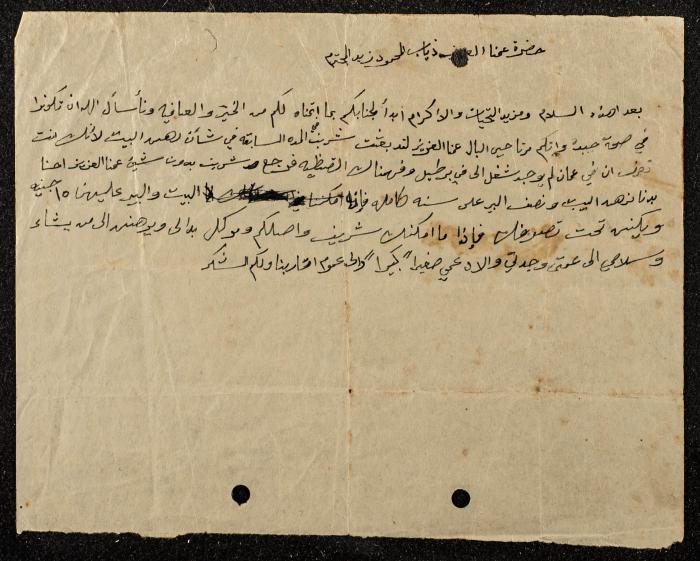 حضرة عمنا العزيز ذياب المحمود زيد المحترم
بعد اهداء السلام ومزيد التحيات والاكرام أبدأ لجنابكم بما اتمناه لكم من الخير والعافيه ونأسأل الله ان تكونوا
في صحة جيدة وانكم مرتاحين البال عمنا العزيز لقد بعثت شريف المده السابقه في شأن رهن البيت لأنك انت
تعرف ان في عمان لم يوجد شغل الى في برطيل وفرجع شريف بدون شيئ عمنا العزيز احنا
بدنا نرهن البيت ونصف البير على سنه كامله فإذا امكنك البيت والبير عليهما ١٥ جنيه
ويكنن تحت تصرفك فإذا ما امكنك شريف واصلكم وموكل بدالى ويرهنن الى من يشاء
وسلامي الى عمتى وجدتي والاد عمي صغيراً كبيراً والى عموم اقاربنا ولكم الشكر